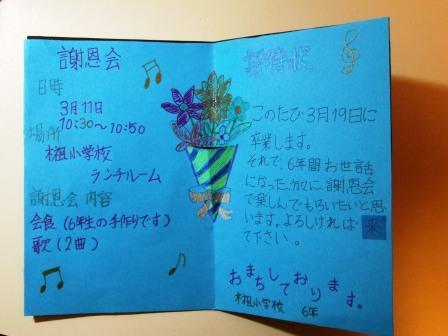 謝恩会
日時
3月11日
10:30～10:50
場所
木祖小学校
ランチルーム
謝恩会 内容
会食(6年生の手作りです)
歌(2曲)
招待状
このたび3月19日に
卒業します。
それで、6年間お世話
になった方々に、謝恩会
で楽しんでもらいたいと思
います。よろしければ 来
て下さい。
おまちしております。
木祖小学校 6年